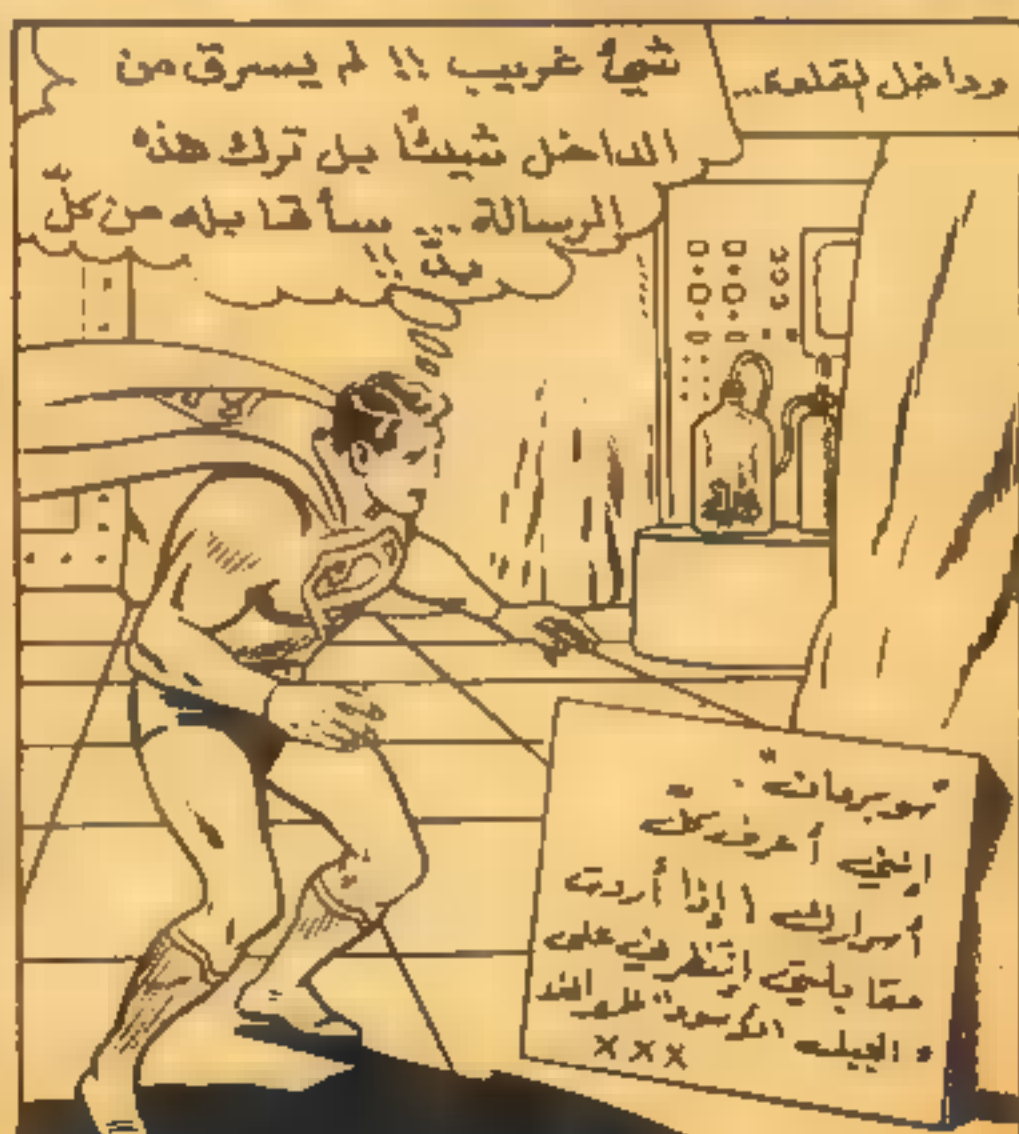 وداخل القلعة...
شيئ غريب !! لم يسرق من
الداخل شيئاً بل ترك هذه
الرسالة ... سأقابله من كلّ
بدّ !!
"سوبرمان"
إنني أعرف كل
أسرارك ! إذا أردت
مقابلتي إنتظرني على
الجبل الأسود
XXX